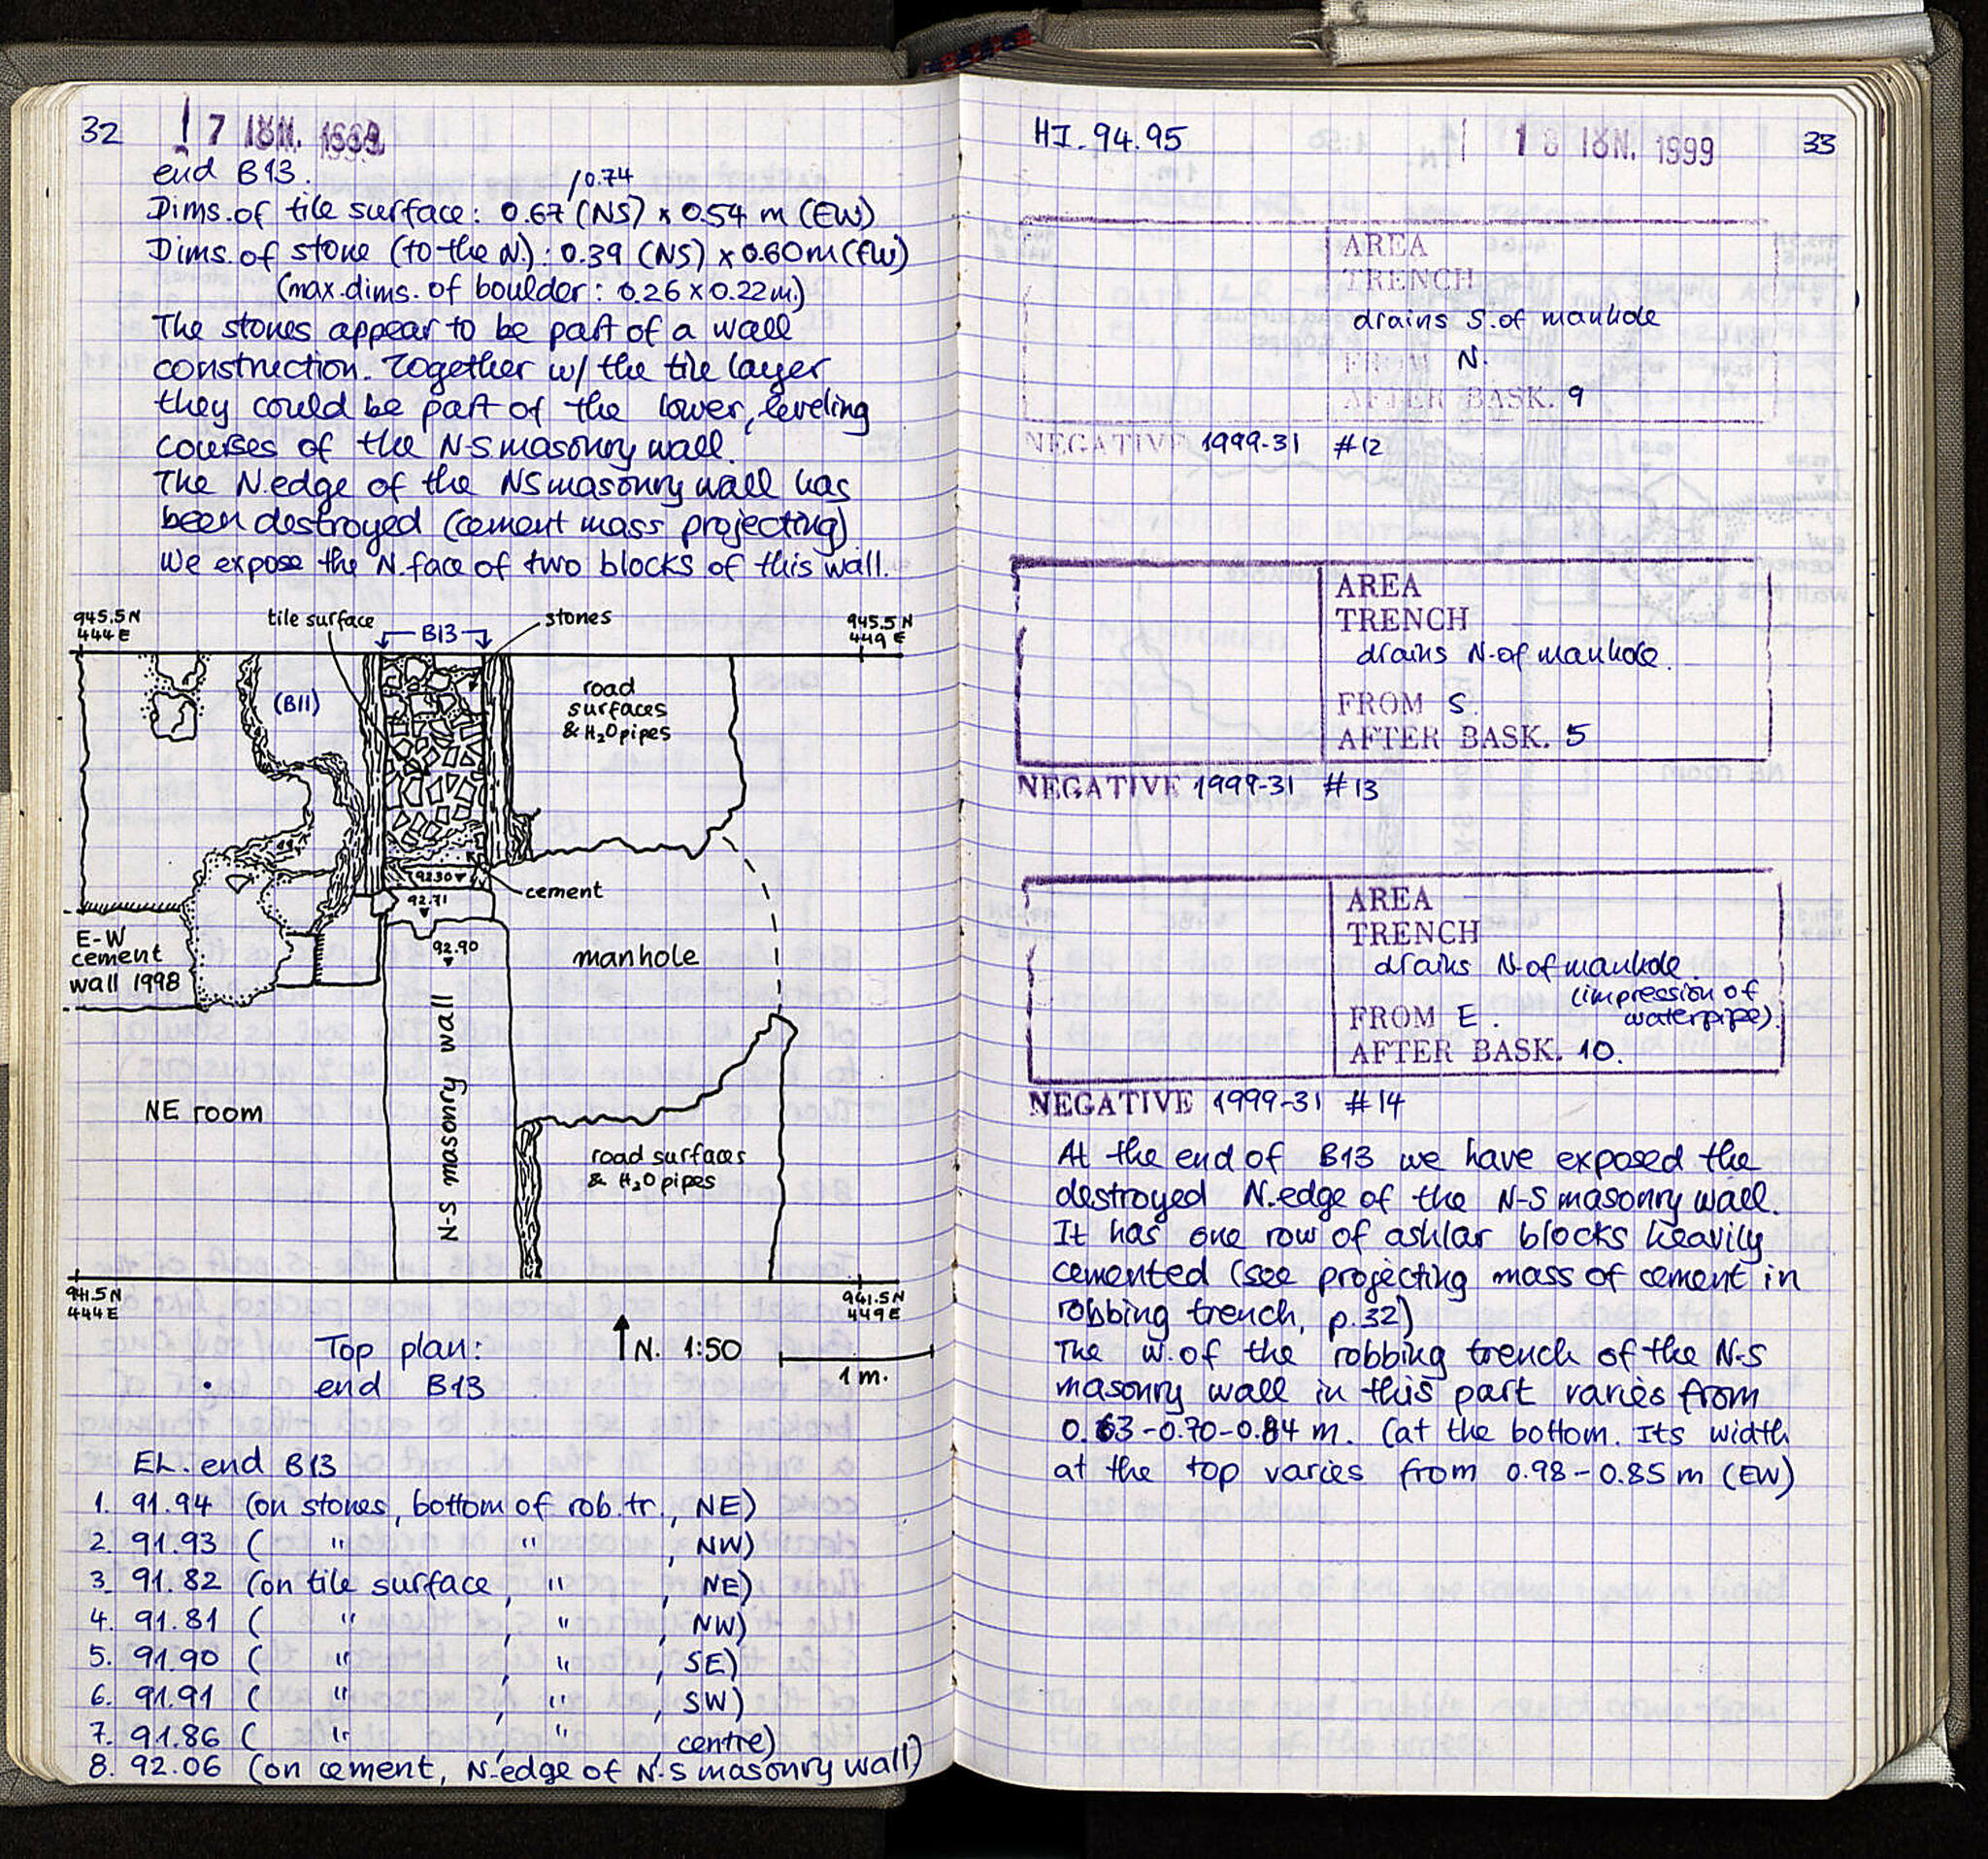 32
! 7 ΙΟΥΝ. 1999
end B13.
/0.74
Dims. of tile surface: 0.67 (NS) x 0.54 m (EW)
Dims. of stone (to the N.): 0.39 (NS) x 0.60m (EW)
(max. dims. of boulder: 0.26 x 0.22m.)
The stones appear to be part of a wall
construction. Together w/ the tile layer
they could be part of the lower, leveling
courses of the N-S masonry wall.
The N. edge of the NS masonry wall has
been destroyed (cement mass projecting)
We expose the N. face of two blocks of this wall.
945.5 N
444 E
tile surface
B13
stones
945.5 N
449 E
(B11)
road
surfaces
& H₂O pipes
92.30
cement
92.71
E-W
cement
wall 1998
92.90
manhole
N-S masonry wall
NE room
road surfaces
& H₂O pipes
941.5 N
444 E
941.5 N
449 E
Top plan:
end B13
N. 1:50
1 m.
EL. end B13
1. 91.94 (on stones, bottom of rob. tr., NE)
2. 91.93 ( " " , NW)
3. 91.82 (on tile surface, " , NE)
4. 91.81 ( " , " , NW)
5. 91.90 ( " , " , SE)
6. 91.91 ( " , " , SW)
7. 91.86 ( " , " , centre)
8. 92.06 (on cement, N. edge of N-S masonry wall)
HI. 94.95
18 ΙΟΥΝ. 1999
33
AREA
TRENCH
drains S. of manhole
FROM N.
AFTER BASK. 9
NEGATIVE 1999-31 #12
AREA
TRENCH
drains N. of manhole.
FROM S.
AFTER BASK. 5
NEGATIVE 1999-31 #13
AREA
TRENCH
drains N. of manhole.
(impression of
FROM E. waterpipe).
AFTER BASK. 10.
NEGATIVE 1999-31 #14
At the end of B13 we have exposed the
destroyed N. edge of the N-S masonry wall.
It has one row of ashlar blocks heavily
cemented (see projecting mass of cement in
robbing trench, p. 32)
The w. of the robbing trench of the N-S
masonry wall in this part varies from
0.63-0.70-0.84 m. (at the bottom. Its width
at the top varies from 0.98-0.85 m (EW)